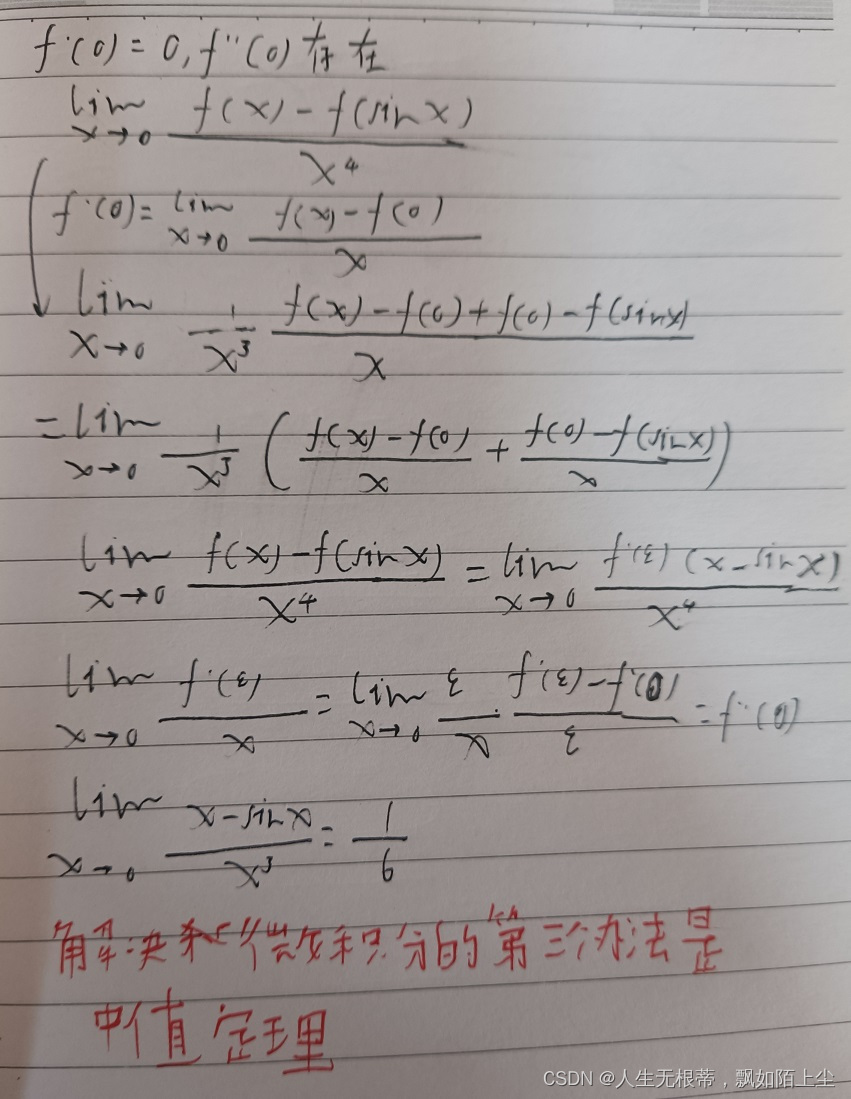 f'(0) = 0, f''(0) 存在
lim x→0 (f(x) - f(sinx)) / x⁴
f'(0) = lim x→0 (f(x) - f(0)) / x
lim x→0 1/x³ (f(x) - f(0) + f(0) - f(sinx)) / x
= lim x→0 1/x³ ( (f(x) - f(0)) / x + (f(0) - f(sinx)) / x )
lim x→0 (f(x) - f(sinx)) / x⁴ = lim x→0 f'(ξ) (x - sinx) / x⁴
lim x→0 f'(ξ) / x = lim x→0 ξ/x · (f'(ξ) - f'(0)) / ξ = f''(0)
lim x→0 (x - sinx) / x³ = 1/6
解决 微分积分的第三个办法是
中值定理
CSDN @人生无根蒂，飘如陌上尘